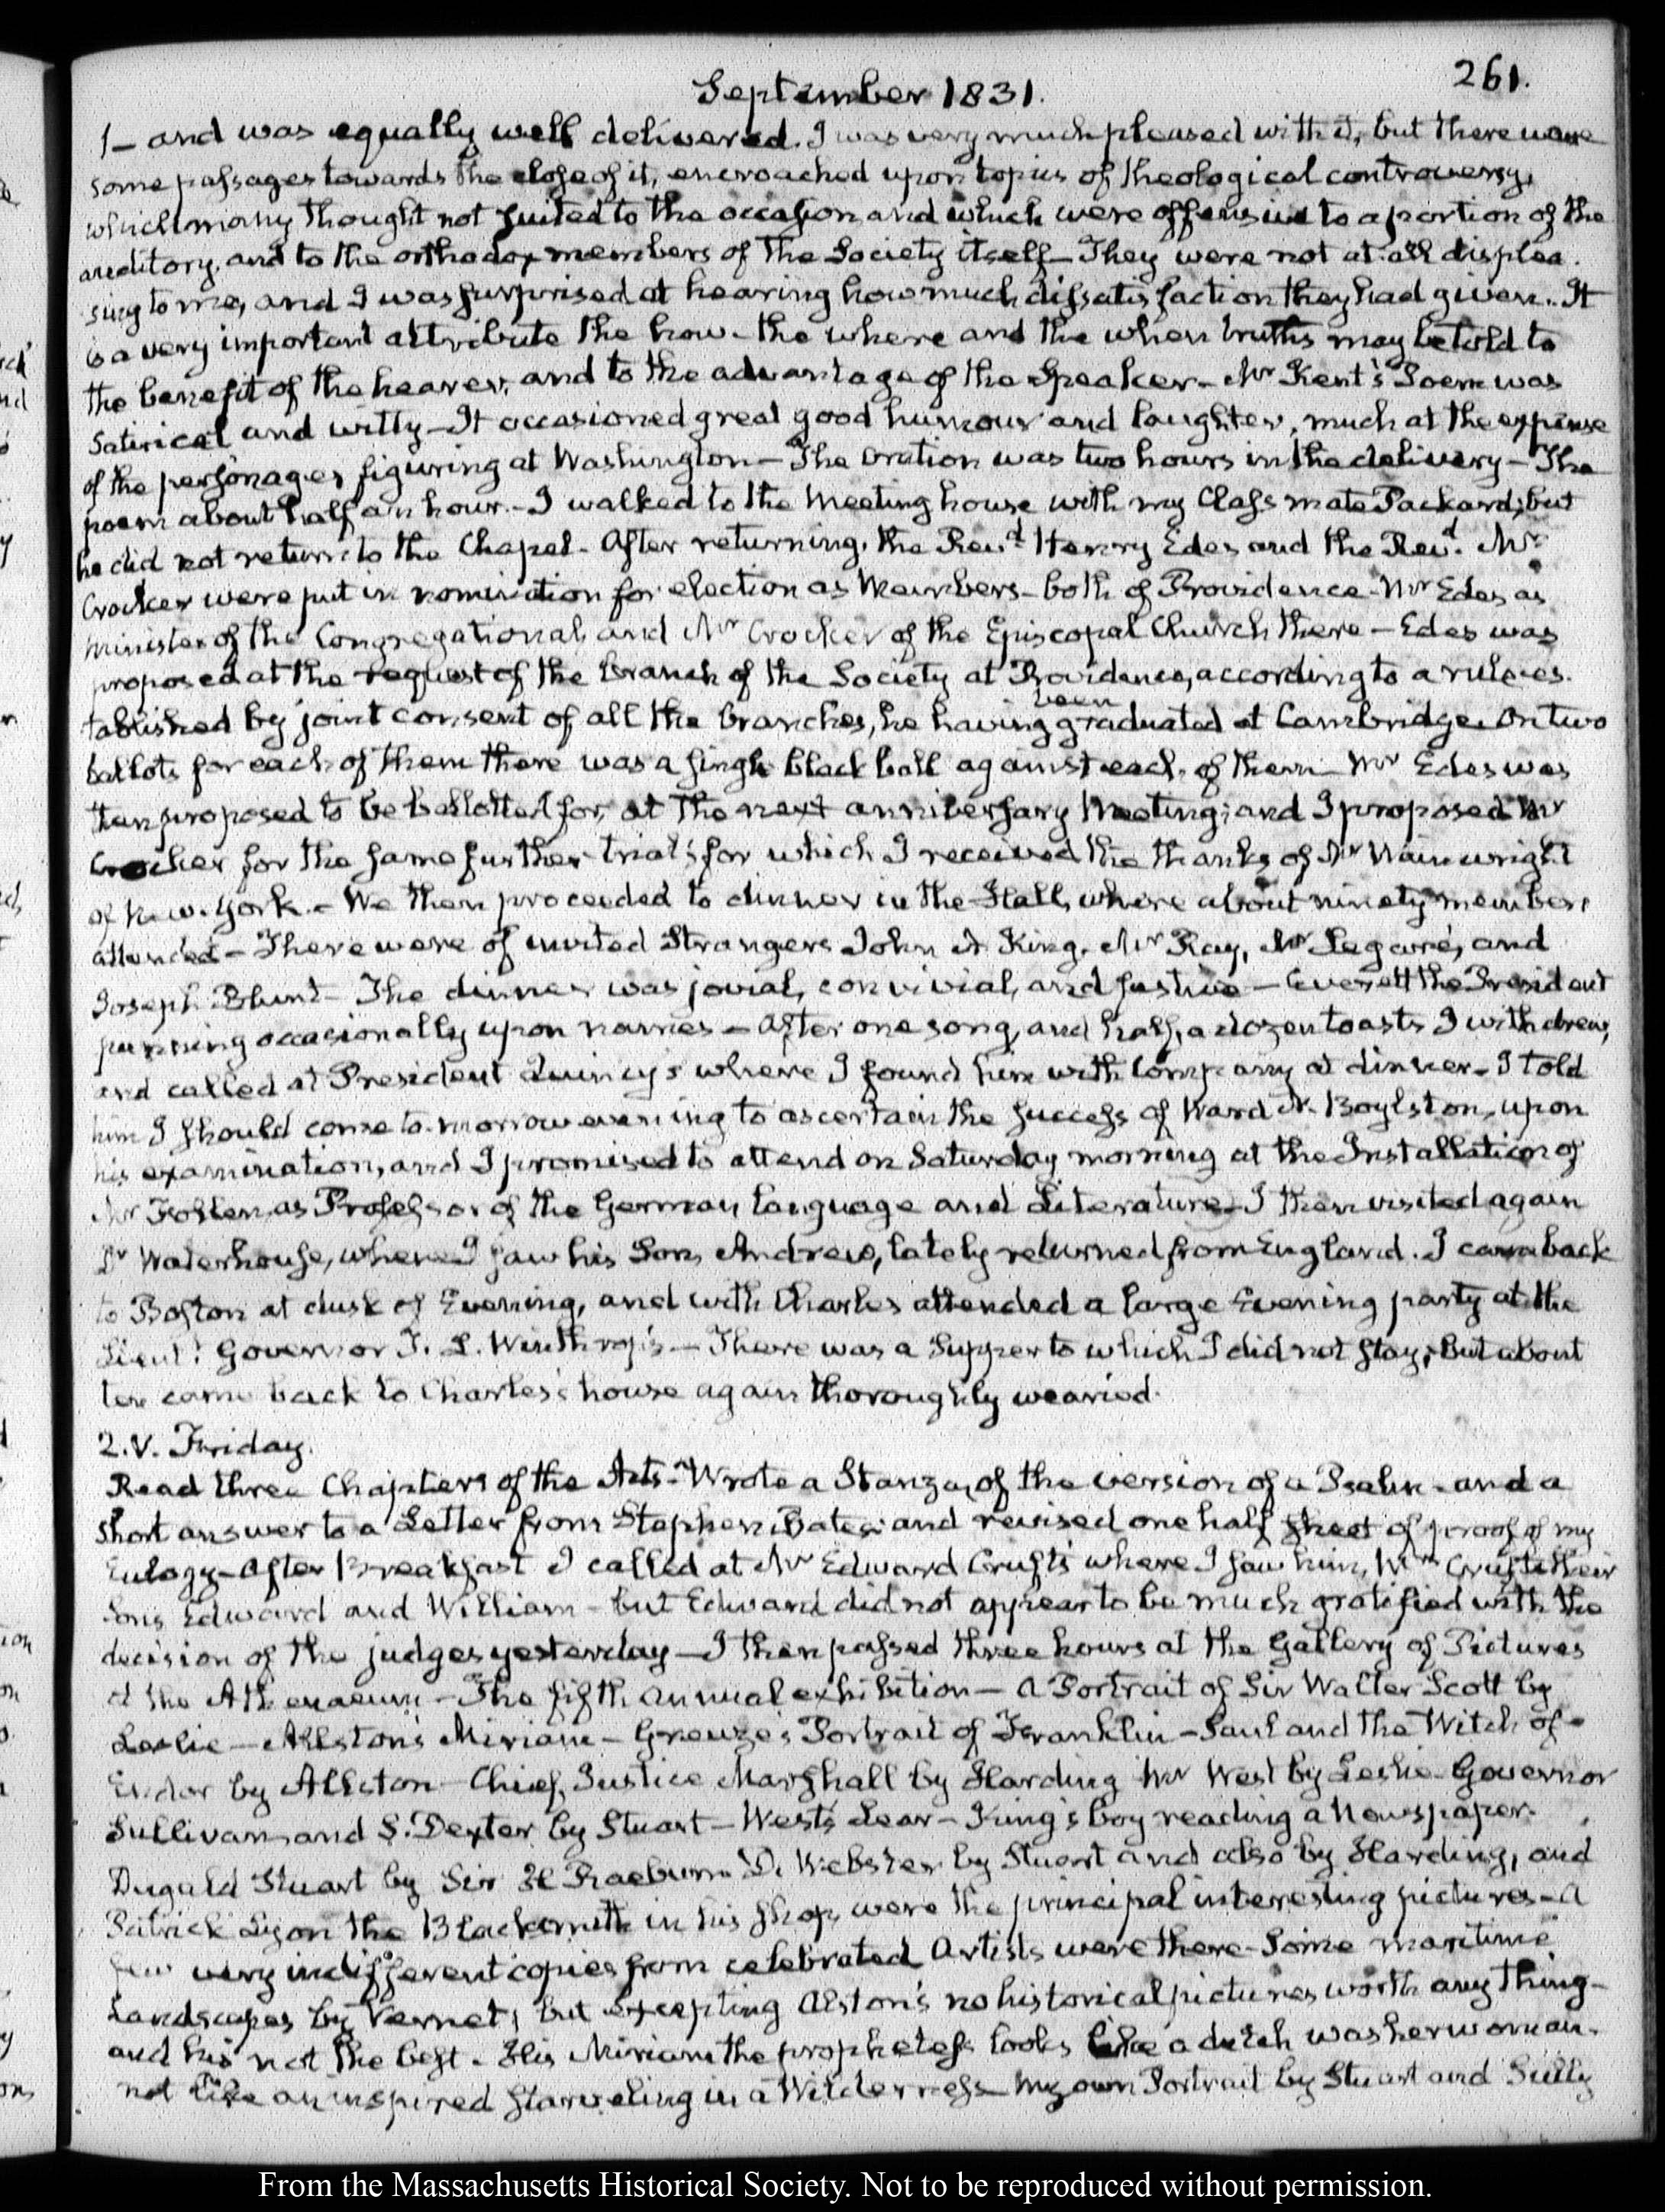 261.
September 1831.
1— and was equally well delivered. I was very much pleased with it, but there were
some passages towards the close of it, encroached upon topics of theological controversy,
which many thought not suited to the occasion, and which were offensive to a portion of the
auditory, and to the orthodox members of the Society itself— They were not at all displea-
sing to me, and I was surprised at hearing how much dissatisfaction they had given. It
is a very important attribute the how— the where and the when truths may be told to
the benefit of the hearer, and to the advantage of the Speaker— Mr Kent's Poem was
Satirical and witty— It occasioned great good humour and laughter, much at the expense
of the personages figuring at Washington— The Oration was two hours in the delivery— The
poem about half an hour.— I walked to the Meeting house with my Class mate Packard; but
he did not return to the Chapel— After returning, the Revd Henry Edes and the Revd Mr
Crocker were put in nomination for election as Members— both of Providence— Mr Edes as
Minister of the Congregational, and Mr Crocker of the Episcopal Church there— Edes was
proposed at the request of the Branch of the Society at Providence, according to a rule es-
tablished by joint consent of all the branches, he having been graduated at Cambridge. On two
ballots for each of them there was a single black ball against each of them— Mr Edes was
then proposed to be ballotted for, at the next anniversary Meeting; and I proposed Mr
Crocker for the same further trial; for which I received the thanks of Dr Wainwright
of New-York.— We then proceeded to dinner in the Hall, where about ninety members
attended— There were of invited Strangers John A King, Mr Ray, Mr Legaré, and
Joseph Blunt— The dinner was jovial, convivial, and festive— Everett the President
punning occasionally upon names— After one song, and half a dozen toasts I withdrew,
and called at President Quincy's where I found him with Company at dinner— I told
him I should come to-morrow evening to ascertain the success of Ward N. Boylston, upon
his examination, and I promised to attend on Saturday morning at the Installation of
Mr Follen, as Professor of the German language and Literature— I then visited again
Dr Waterhouse, where I saw his Son, Andrew, lately returned from England. I came back
to Boston at dusk of Evening, and with Charles attended a large Evening party at the
Lieutt Governor T. L. Winthrop's— There was a Supper to which I did not stay; but about
ten came back to Charles's house again thoroughly wearied.
2. V. Friday.
Read three Chapters of the Acts— Wrote a Stanza, of the version of a Psalm— and a
short answer to a Letter from Stephen Bates; and revised one half sheet of proof of my
Eulogy— After Breakfast I called at Mr Edward Cruft's where I saw him, Mrs Cruft their
sons Edward and William— but Edward did not appear to be much gratified with the
decision of the judges yesterday— I then passed three hours at the Gallery of Pictures
at the Athenaeum— The fifth annual exhibition— A Portrait of Sir Walter Scott by
Leslie— Allston's Miriam— Greuze's Portrait of Franklin— Saul and the Witch of
Endor by Allston— Chief Justice Marshall by Harding Mr West by Leslie— Governor
Sullivan and S. Dexter by Stuart— West's Lear— King's boy reading a Newspaper.
Dugald Stuart by Sir H Raeburn D. Webster by Stuart and also by Harding, and
Patrick Lyon the Blacksmith in his shop, were the principal interesting pictures— A
few very indifferent copies from celebrated Artists were there— Some maritime
Landscapes by Vernet; but excepting Alston's no historical pictures worth any thing—
and his not the best. His Miriam the prophetess looks like a dutch washerwoman—
not like an inspired starveling in a Wilderness— My own Portrait by Stuart and Sully
From the Massachusetts Historical Society. Not to be reproduced without permission.